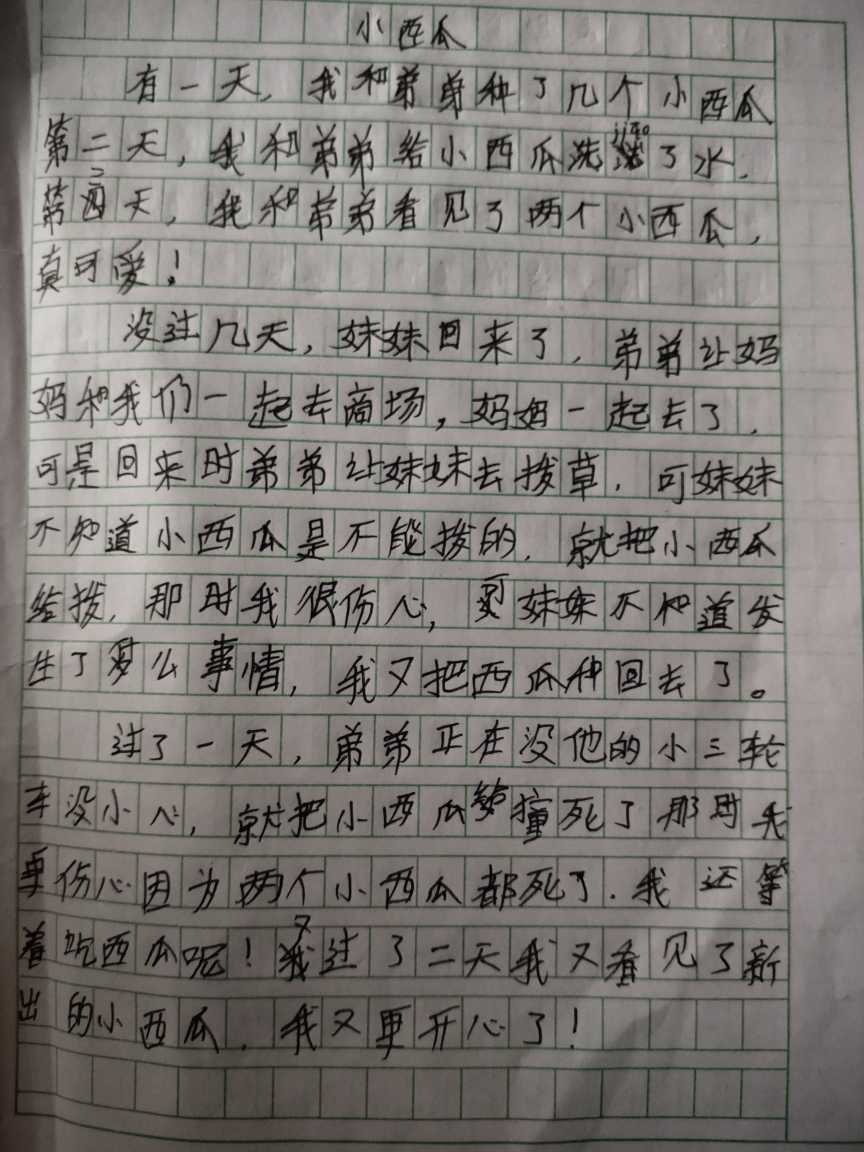 小西瓜
有一天，我和弟弟种了几个小西瓜
第二天，我和弟弟给小西瓜洗了水，
第三天，我和弟弟看见了两个小西瓜，
真可爱！
没过几天，妹妹回来了，弟弟让妈
妈和我们一起去商场，妈妈一起去了，
可是回来时弟弟让妹妹去拨草，可妹妹
不知道小西瓜是不能拨的，就把小西瓜
给拨，那时我很伤心，妹妹不知道发
生了么事情，我又把西瓜种回去了。
过了一天，弟弟正在没他的小三轮
车没小心，就把小西瓜撞死了那时我
更伤心因为两个小西瓜都死了．我还等
着吃西瓜呢！又过了二天我又看见了新
出的小西瓜，我又更开心了！